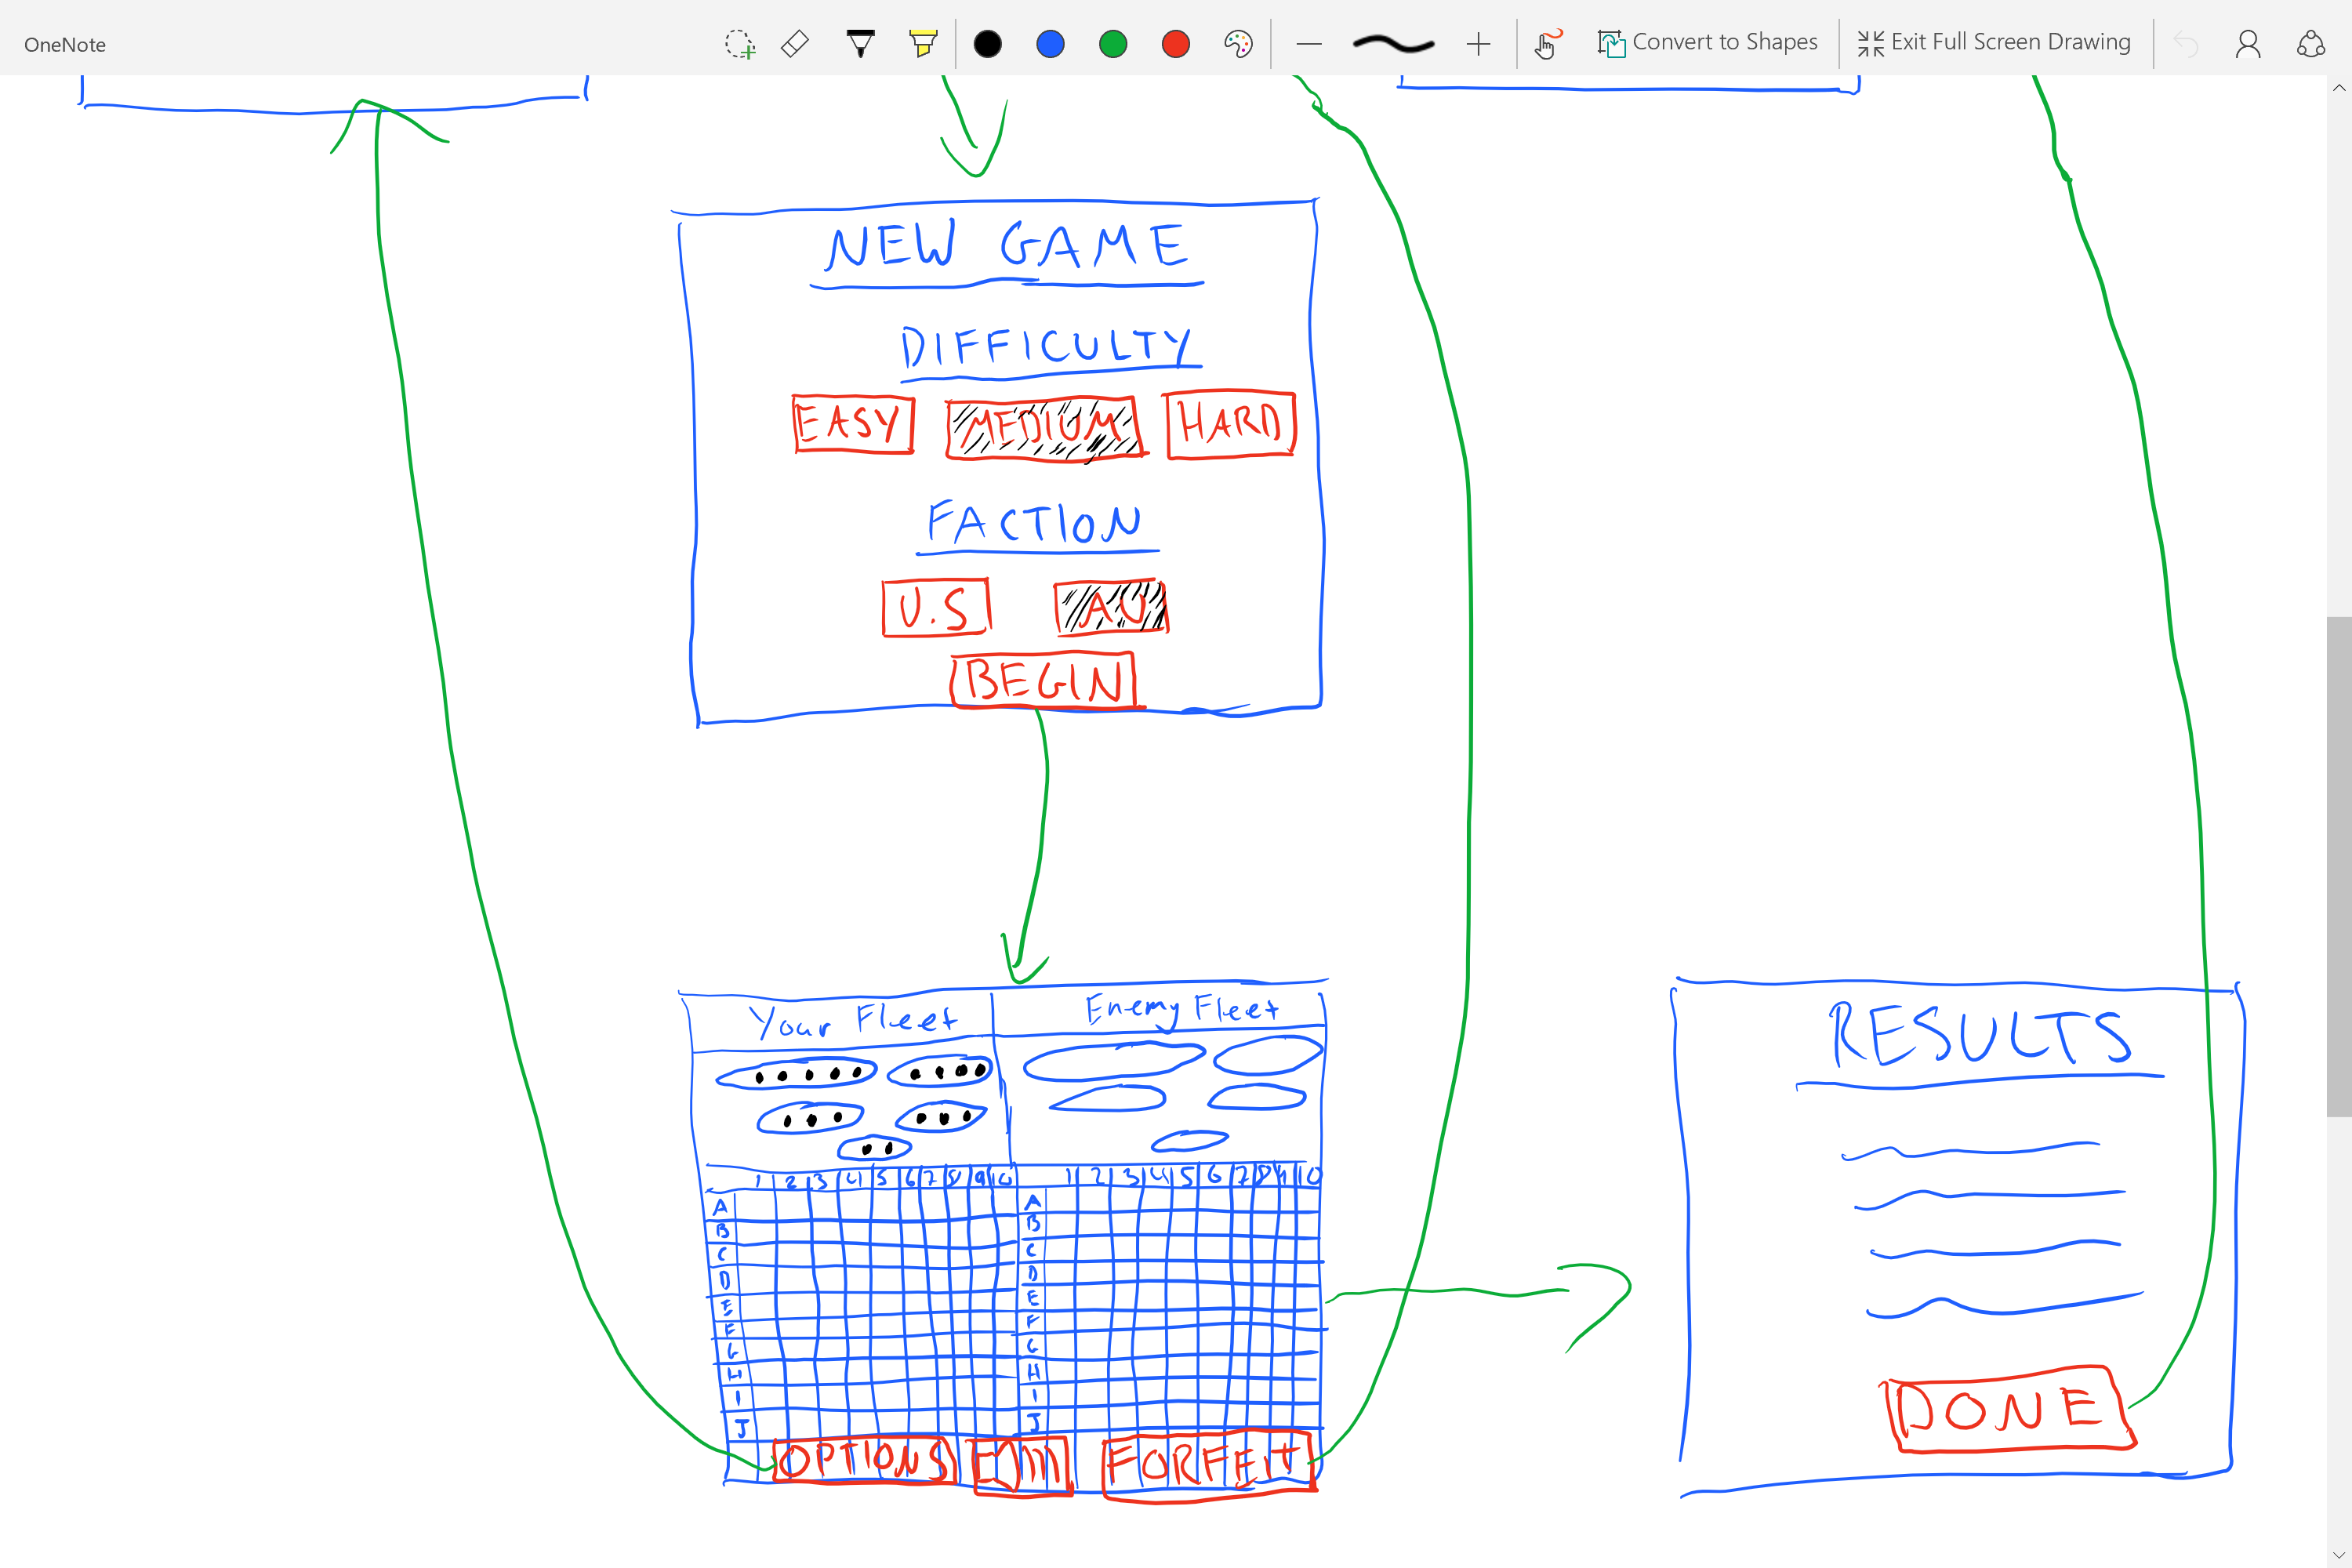 OneNote
Convert to Shapes
Exit Full Screen Drawing
NEW GAME
DIFFICULTY
EASY MEDIUM HARD
FACTION
U.S AU
BEGIN
Your Fleet Enemy Fleet
1 2 3 4 5 6 7 8 9 10 1 2 3 4 5 6 7 8 9 10
A A
B B
C C
D D
E E
F F
G G
H H
I I
J J
OPTIONS FORFEIT
RESULTS
DONE